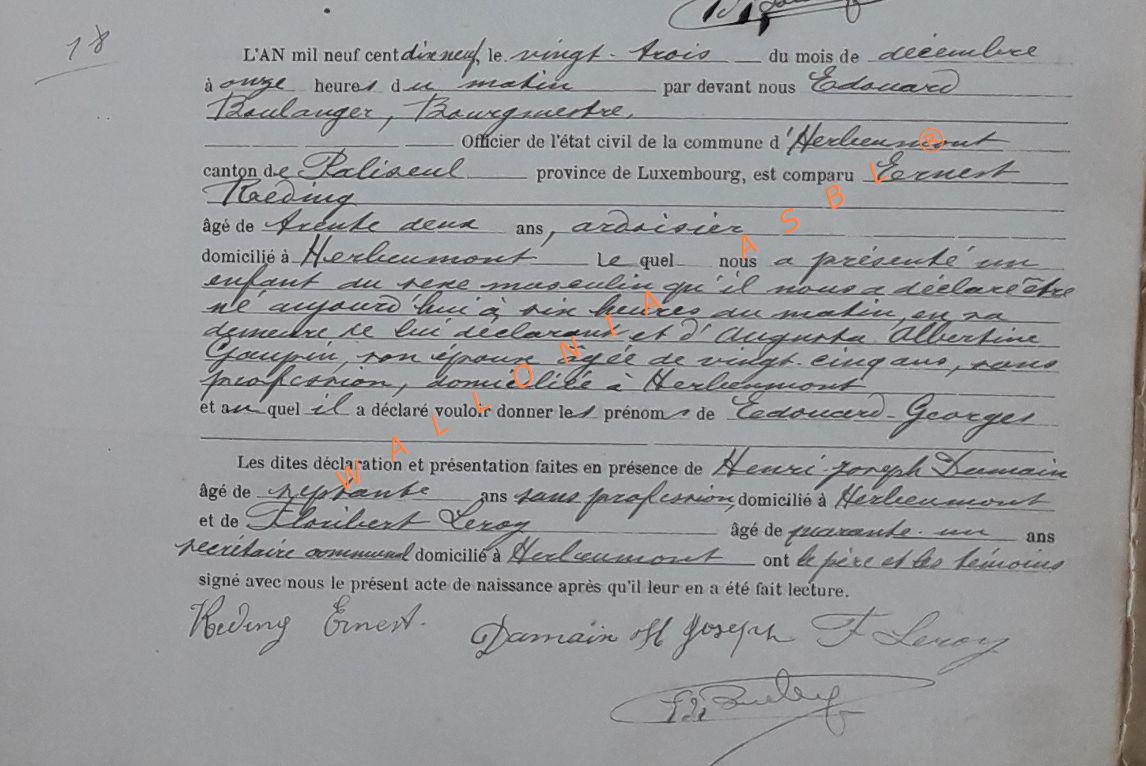 18
L'AN mil neuf cent dix neuf, le vingt-trois du mois de décembre
à onze heures du matin par devant nous Edouard
Boulanger, Bourgmestre,
Officier de l'état civil de la commune d'Herbeumont
canton de Paliseul province de Luxembourg, est comparu Ernest
Reding
âgé de trente deux ans, ardoisier
domicilié à Herbeumont Le quel nous a présenté un
enfant du sexe masculin qu'il nous a déclaré être
né aujourd'hui à six heures du matin, en sa
demeure de lui déclarant et d'Augusta Albertine
Goupin, son épouse âgée de vingt cinq ans, sans
profession, domiciliée à Herbeumont
et au quel il a déclaré vouloir donner les prénoms de Edouard-Georges
Les dites déclaration et présentation faites en présence de Henri-Joseph Damain
âgé de septante ans sans profession, domicilié à Herbeumont
et de Floribert Leroy âgé de quarante-un ans
secrétaire communal domicilié à Herbeumont ont le père et les témoins
signé avec nous le présent acte de naissance après qu'il leur en a été fait lecture.
Reding Ernest. Damain H Joseph F Leroy
WALLONIA ASBL ®